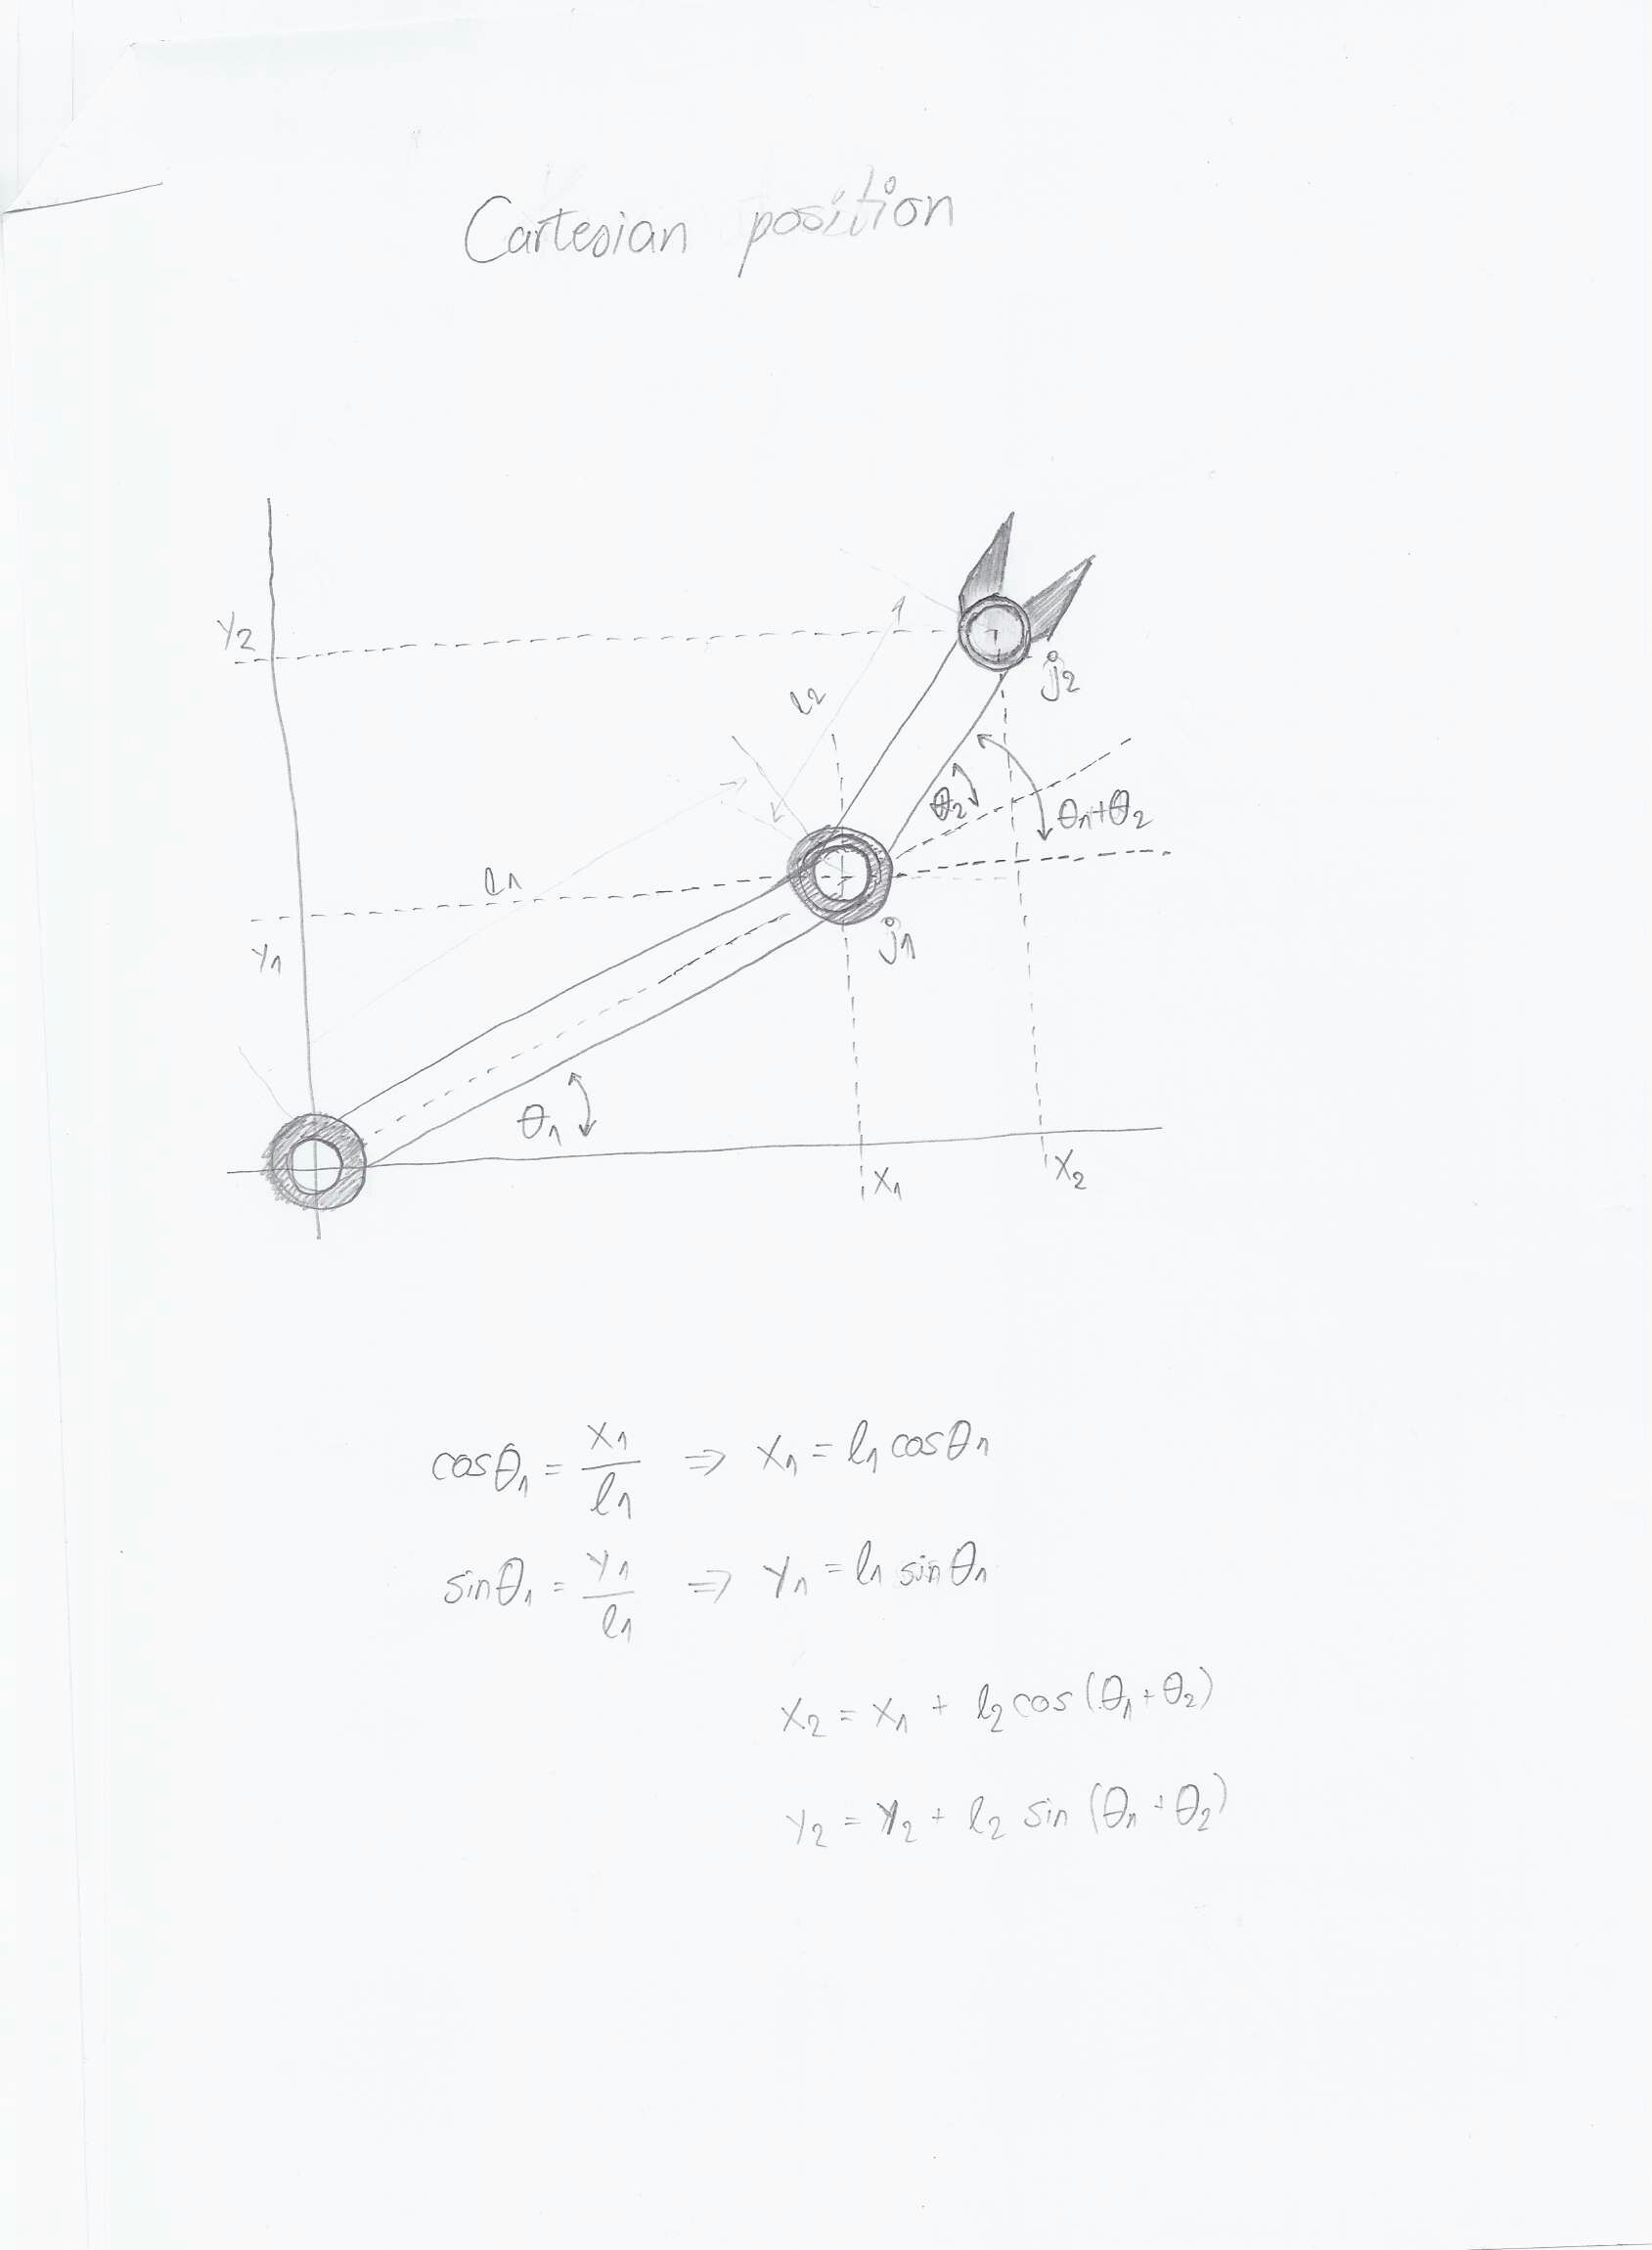 Cartesian position
y2
l2
j2
θ2
θ1+θ2
l1
j1
y1
θ1
x1
x2
cosθ1 = x1/l1 ⇒ x1 = l1 cosθ1
sinθ1 = y1/l1 ⇒ y1 = l1 sinθ1
x2 = x1 + l2 cos(θ1+θ2)
y2 = y2 + l2 sin (θ1+θ2)